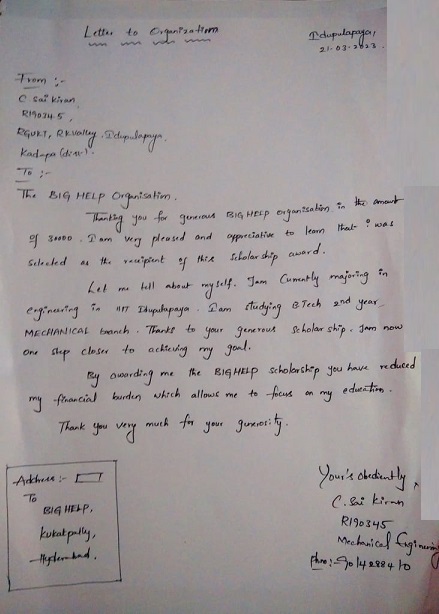 Letter to Organization
Idupulapaya,
21-03-2023.
From :-
C. Sai Kiran,
R190345,
RGUKT, RK Valley, Idupulapaya,
Kadapa (dist).
To :-
The BIG HELP Organisation.
Thanking you for generous BIG HELP organisation in the amount
of 30000. I am very pleased and appreciative to learn that i was
selected as the recipient of this scholarship award.
Let me tell about myself. Iam Currently majoring in
engineering in IIIT Idupulapaya. I am studying B.Tech 2nd year
MECHANICAL branch. Thanks to your generous scholar ship. Iam now
one step closer to achieving my goal.
By awarding me the BIGHELP scholorship you have reduced
my financial burden which allows me to focus on my education.
Thank you very much for your generosity.
Address :-
To
BIG HELP,
Kukatpally,
Hyderabad.
Your's obediently,
C. Sai Kiran
R190345
Mechanical Engineering
Phno:- 9014288410